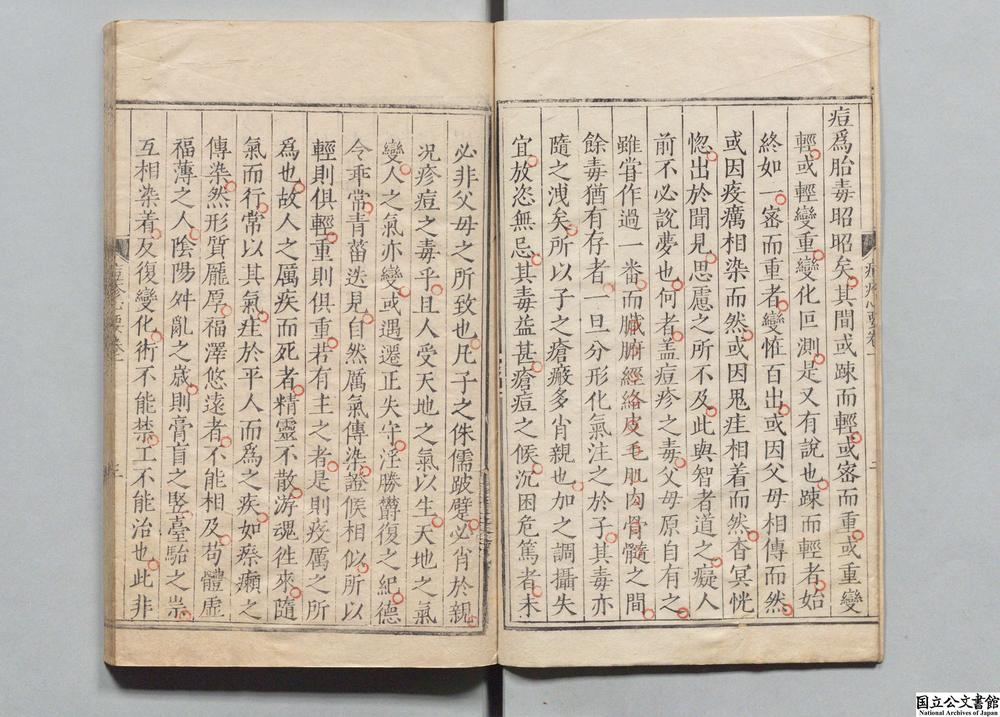 痘爲胎毒昭昭矣其間或踈而輕或密而重或重變
輕或輕變重變化叵測是又有說也踈而輕者始
終如一密而重者變恠百出或因父母相傳而然
或因疫癘相染而然或因鬼疰相着而然杳冥恍
惚出於聞見思慮之所不及此與智者道之癡人
前不必說夢也何者盖痘疹之毒父母原自有之
雖甞作過一番而臓腑經絡皮毛肌肉骨髓之間
餘毒猶有存者一旦分形化氣注之於子其毒亦
隨之洩矣所以子之瘡瘢多肖親也加之調攝失
宜放恣無忌其毒益甚瘡痘之候沉困危篤者未
必非父母之所致也凡子之侏儒跛躄必肖於親
况疹痘之毒乎且人受天地之氣以生天地之氣
變人之氣亦變或遇遷正失守淫勝欝復之紀德
令乖常青菑迭見自然厲氣傳染證候相似所以
輕則俱輕重則俱重若有主之者是則疫厲之所
爲也故人之厲疾而死者精靈不散游魂往來隨
氣而行常以其氣疰於平人而爲之疾如瘵癩之
傳染然形質厖厚福澤悠遠者不能相及茍體虛
福薄之人陰陽舛亂之歲則膏肓之竪臺駘之祟
互相染着反復變化術不能禁工不能治也此非
国立公文書館
National Archives of Japan